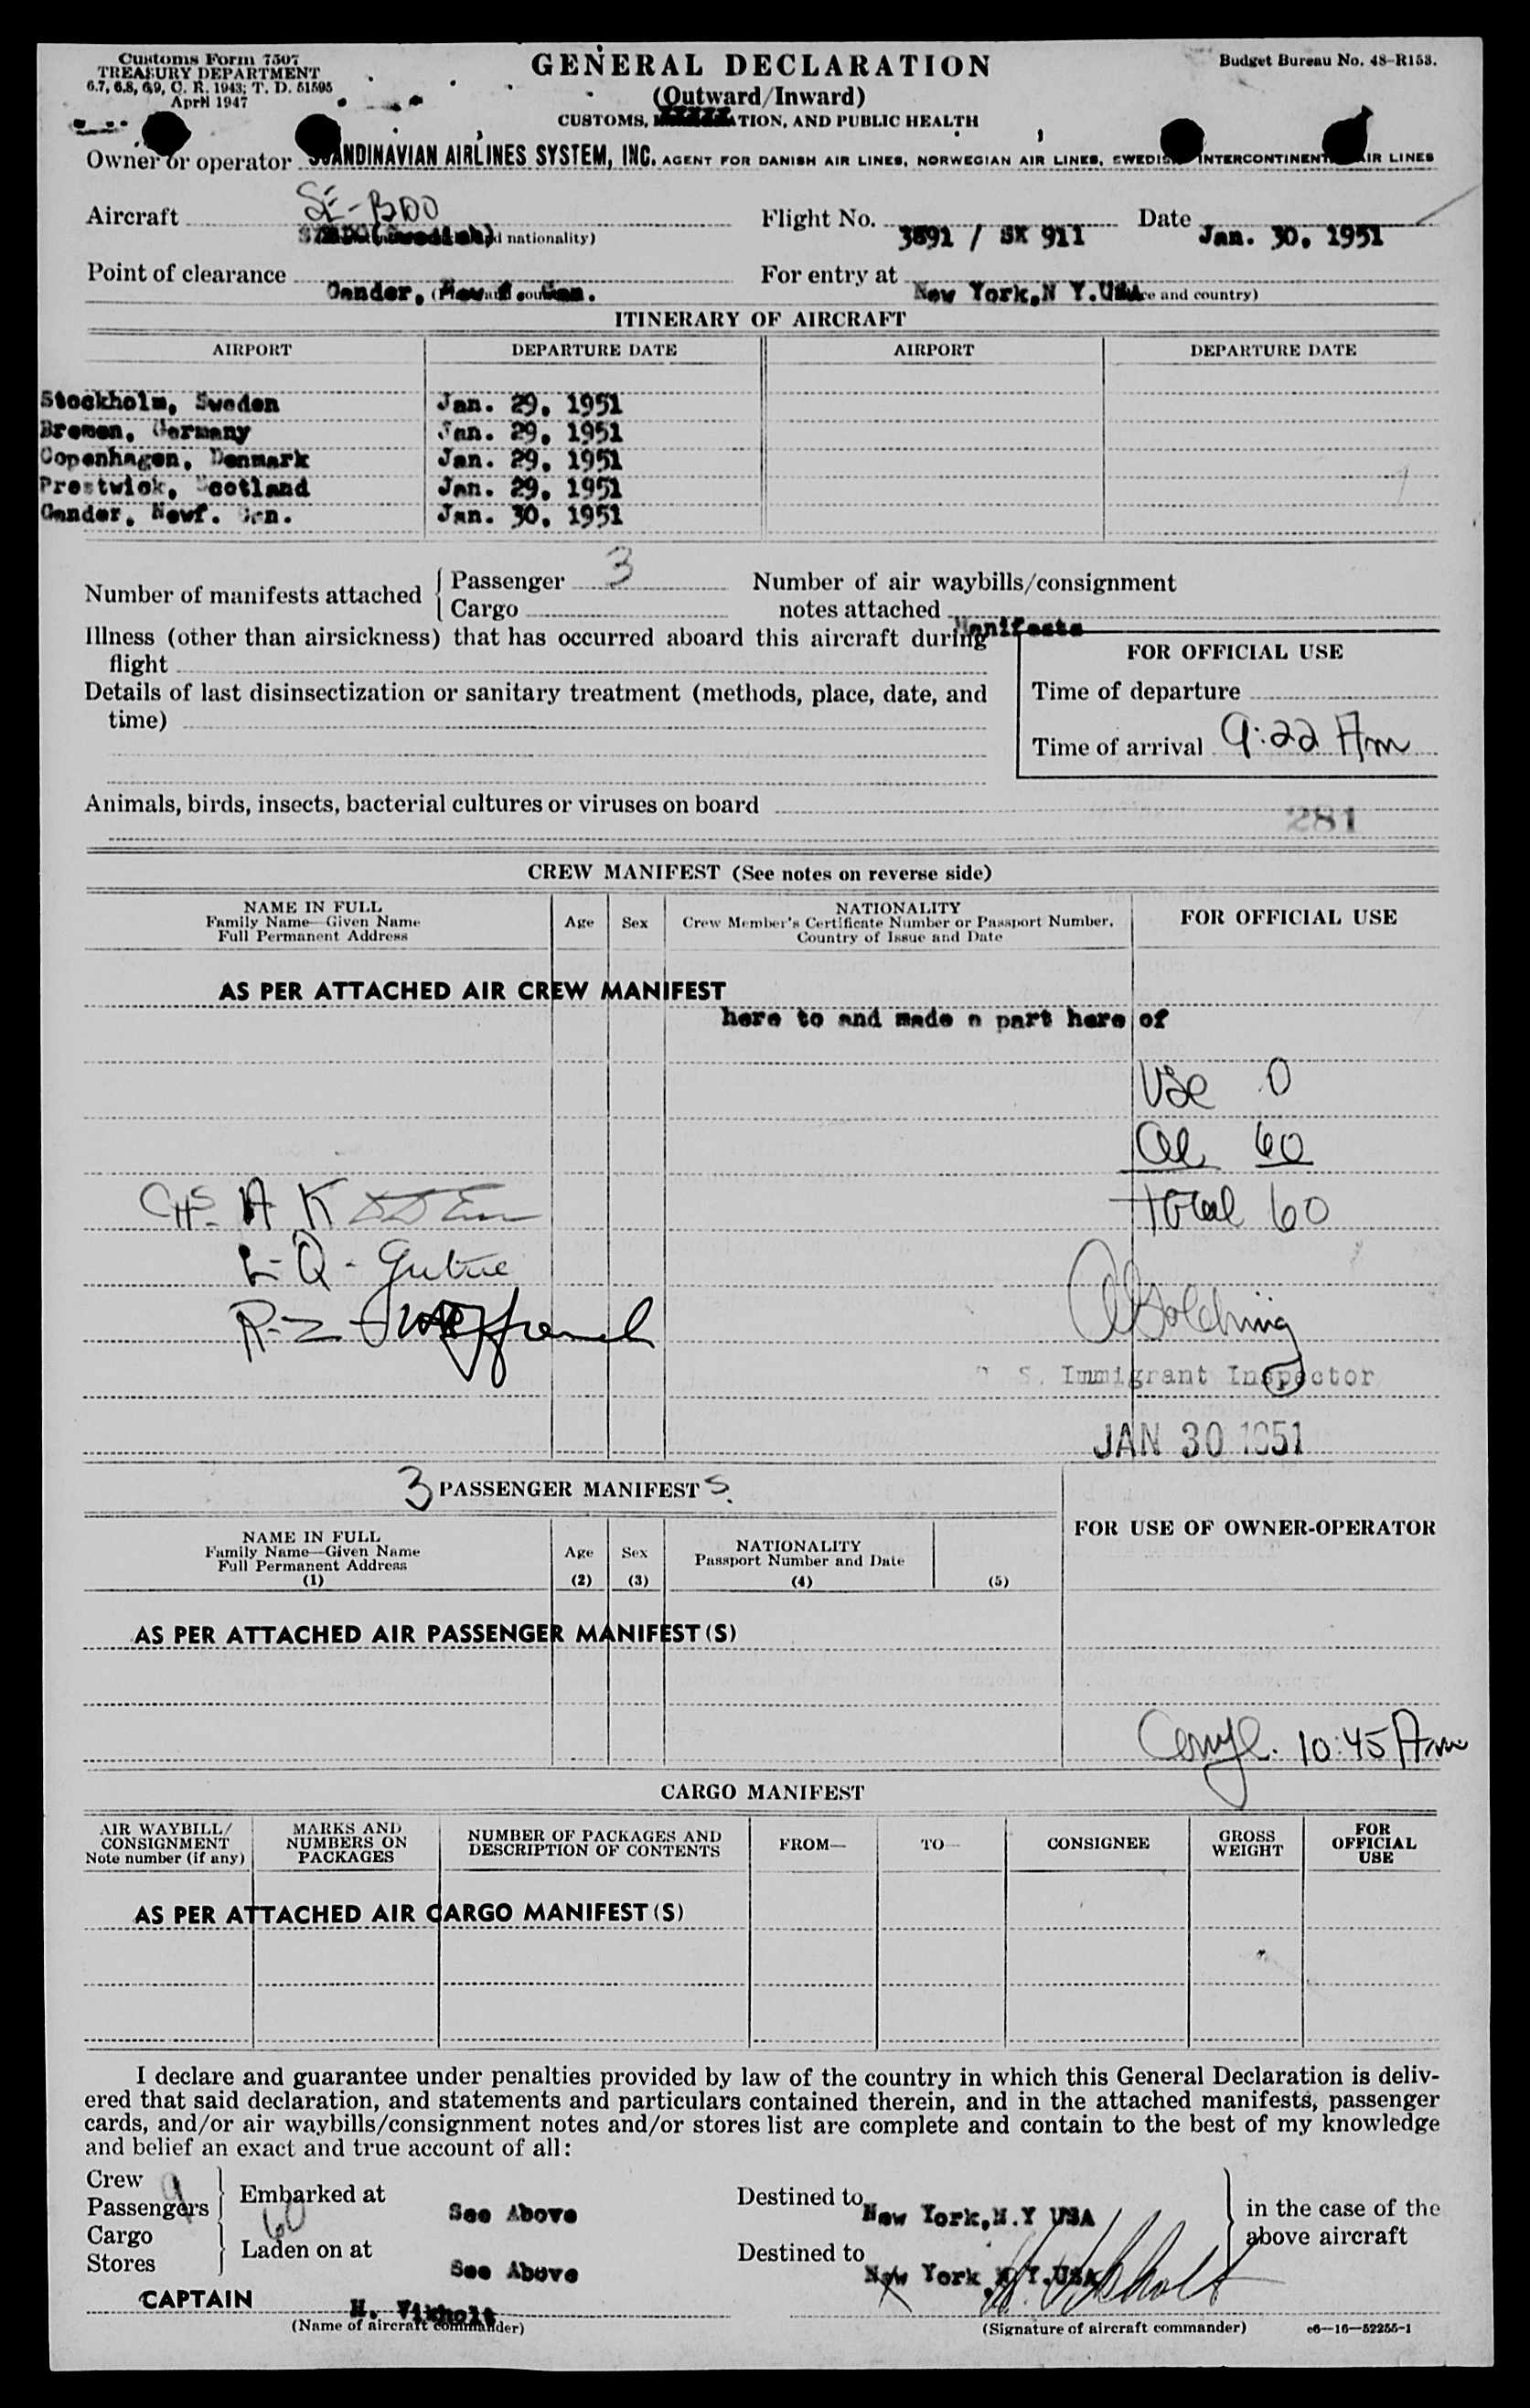 Customs Form 7507
TREASURY DEPARTMENT
6.7, 6.8, 6.9, C. R. 1943; T. D. 51595
April 1947
GENERAL DECLARATION
(Outward/Inward)
CUSTOMS, TION, AND PUBLIC HEALTH
Budget Bureau No. 48-R153.
Owner or operator SCANDINAVIAN AIRLINES SYSTEM, INC. AGENT FOR DANISH AIR LINES, NORWEGIAN AIR LINES, SWEDISH INTERCONTINENTAL AIR LINES
Aircraft SE-BDO Flight No. 3891 / SK 911 Date Jan. 30, 1951
(Swedish) nationality)
Point of clearance Gander, Newf. Can. For entry at New York, N Y. USA
and country)
ITINERARY OF AIRCRAFT
AIRPORT DEPARTURE DATE AIRPORT DEPARTURE DATE
Stockholm, Sweden Jan. 29, 1951
Bremen, Germany Jan. 29, 1951
Copenhagen, Denmark Jan. 29, 1951
Prestwick, Scotland Jan. 29, 1951
Gander, Newf. Can. Jan. 30, 1951
Number of manifests attached { Passenger 3
Cargo
Number of air waybills/consignment
notes attached Manifests
Illness (other than airsickness) that has occurred aboard this aircraft during
flight
Details of last disinsectization or sanitary treatment (methods, place, date, and
time)
FOR OFFICIAL USE
Time of departure
Time of arrival 9:22 Am
Animals, birds, insects, bacterial cultures or viruses on board
281
CREW MANIFEST (See notes on reverse side)
NAME IN FULL
Family Name—Given Name
Full Permanent Address
Age
Sex
NATIONALITY
Crew Member's Certificate Number or Passport Number,
Country of Issue and Date
FOR OFFICIAL USE
AS PER ATTACHED AIR CREW MANIFEST
here to and made a part here of
USC 0
Al 60
Total 60
U. S. Immigrant Inspector
JAN 30 1951
3 PASSENGER MANIFESTS
NAME IN FULL
Family Name—Given Name
Full Permanent Address
(1)
Age
(2)
Sex
(3)
NATIONALITY
Passport Number and Date
(4)
(5)
FOR USE OF OWNER-OPERATOR
AS PER ATTACHED AIR PASSENGER MANIFEST(S)
10:45 Am
CARGO MANIFEST
AIR WAYBILL/
CONSIGNMENT
Note number (if any)
MARKS AND
NUMBERS ON
PACKAGES
NUMBER OF PACKAGES AND
DESCRIPTION OF CONTENTS
FROM—
TO—
CONSIGNEE
GROSS
WEIGHT
FOR
OFFICIAL
USE
AS PER ATTACHED AIR CARGO MANIFEST(S)
I declare and guarantee under penalties provided by law of the country in which this General Declaration is deliv-
ered that said declaration, and statements and particulars contained therein, and in the attached manifests, passenger
cards, and/or air waybills/consignment notes and/or stores list are complete and contain to the best of my knowledge
and belief an exact and true account of all:
Crew 9
Passengers 60
Cargo
Stores
Embarked at See Above Destined to New York, N.Y USA
Laden on at See Above Destined to New York, N.Y. USA
in the case of the
above aircraft
CAPTAIN H. Vikholt H. Vikholt
(Name of aircraft commander) (Signature of aircraft commander) c6—16—52255-1